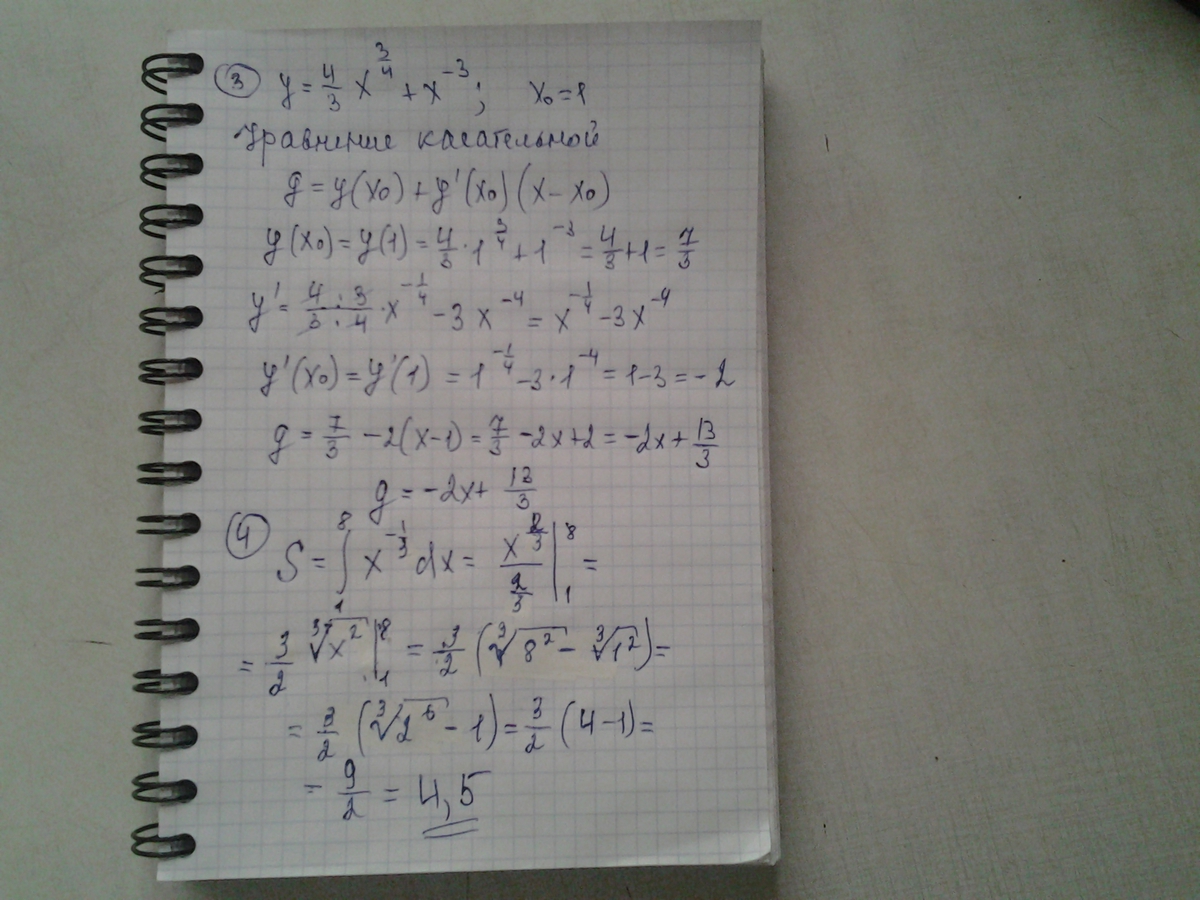 ③ y = 4/3 x^(3/4) + x^(-3); x₀ = 1
Уравнение касательной
y = y(x₀) + y'(x₀)(x - x₀)
y(x₀) = y(1) = 4/3 · 1^(3/4) + 1^(-3) = 4/3 + 1 = 7/3
y' = (4 · 3)/(3 · 4) · x^(-1/4) - 3x^(-4) = x^(-1/4) - 3x^(-4)
y'(x₀) = y'(1) = 1^(-1/4) - 3 · 1^(-4) = 1 - 3 = -2
y = 7/3 - 2(x - 1) = 7/3 - 2x + 2 = -2x + 13/3
y = -2x + 13/3
④ S = ∫₁⁸ x^(-1/3) dx = x^(2/3)/(2/3) |₁⁸ =
= 3/2 ∛(x²) |₁⁸ = 3/2 (∛(8²) - ∛(1²)) =
= 3/2 (∛(2⁶) - 1) = 3/2 (4 - 1) =
= 9/2 = 4,5